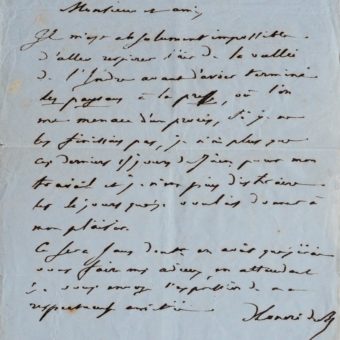 Monsieur et ami,
Il m'est absolument impossible
d'aller respirer l'air de la vallée
de l'Indre avant d'avoir terminé
les paysans à la presse, où l'on
me menace d'un procès, si je ne
les finissais pas, je n'ai plus que
ces derniers 15 jours de pour mon
travail et je n'ose pas distraire
les jours que je voulais donner à
mon plaisir.
Ce sera sans doute en août que j'irai
vous faire mes adieux, en attendant
je vous envoye l'expression de ma
respectueuse amitié
Honoré de B